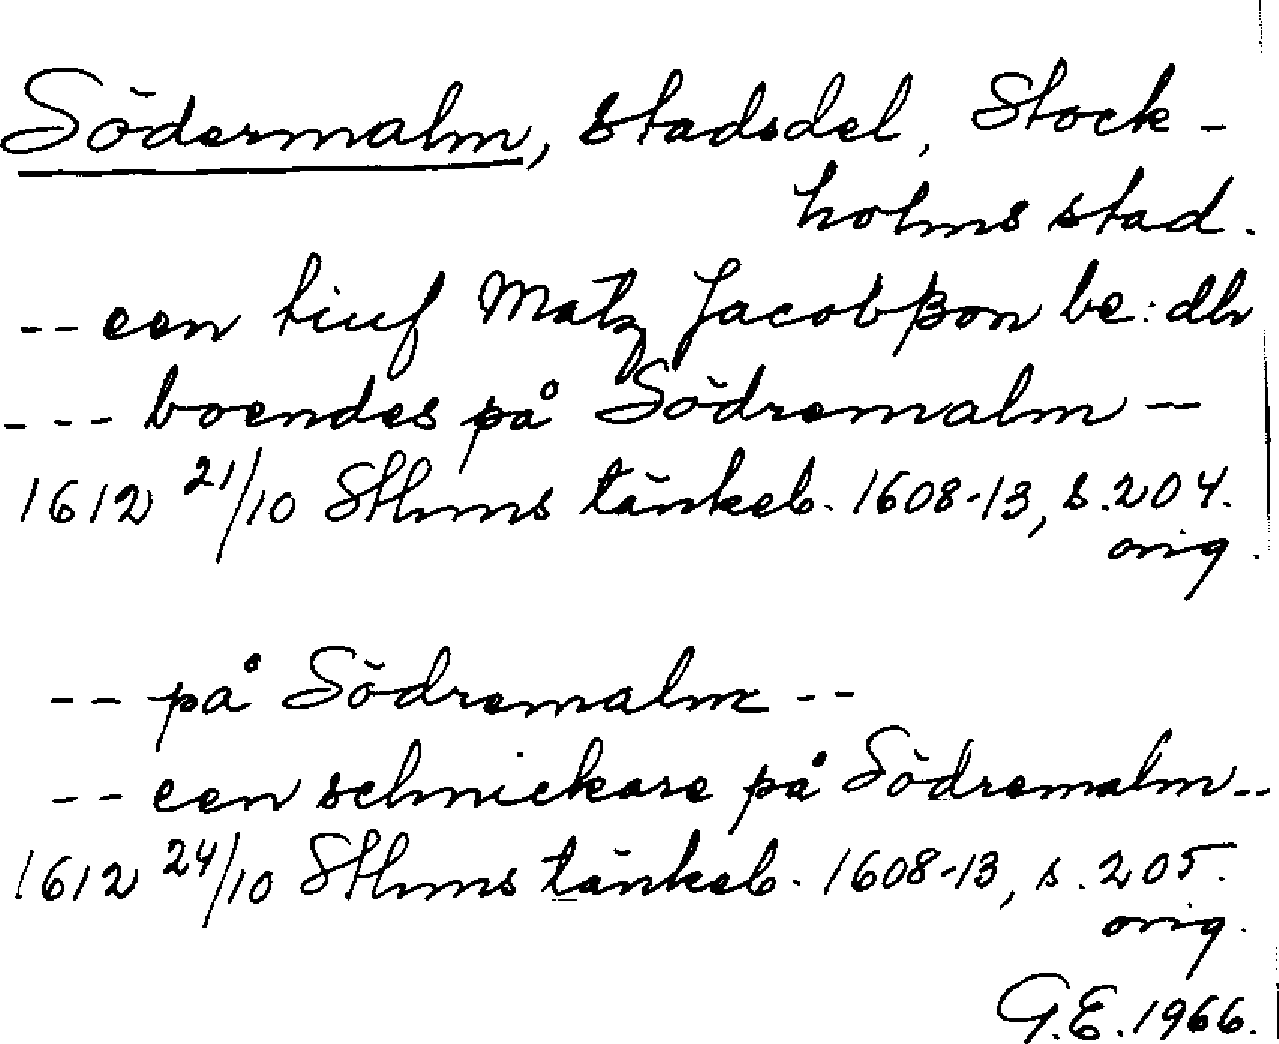 Södermalm, stadsdel, Stock-
holms stad.
-- een tiuf Matz Jacobßon be:dh
--- boendes på Södremalm --
1612 21/10 Sthms tänkeb. 1608-13, s.204.
orig.
-- på Södremalm --
-- een schnickare på Södremalm--
1612 24/10 Sthms tänkeb. 1608-13, s.205.
orig.
G.E. 1966.